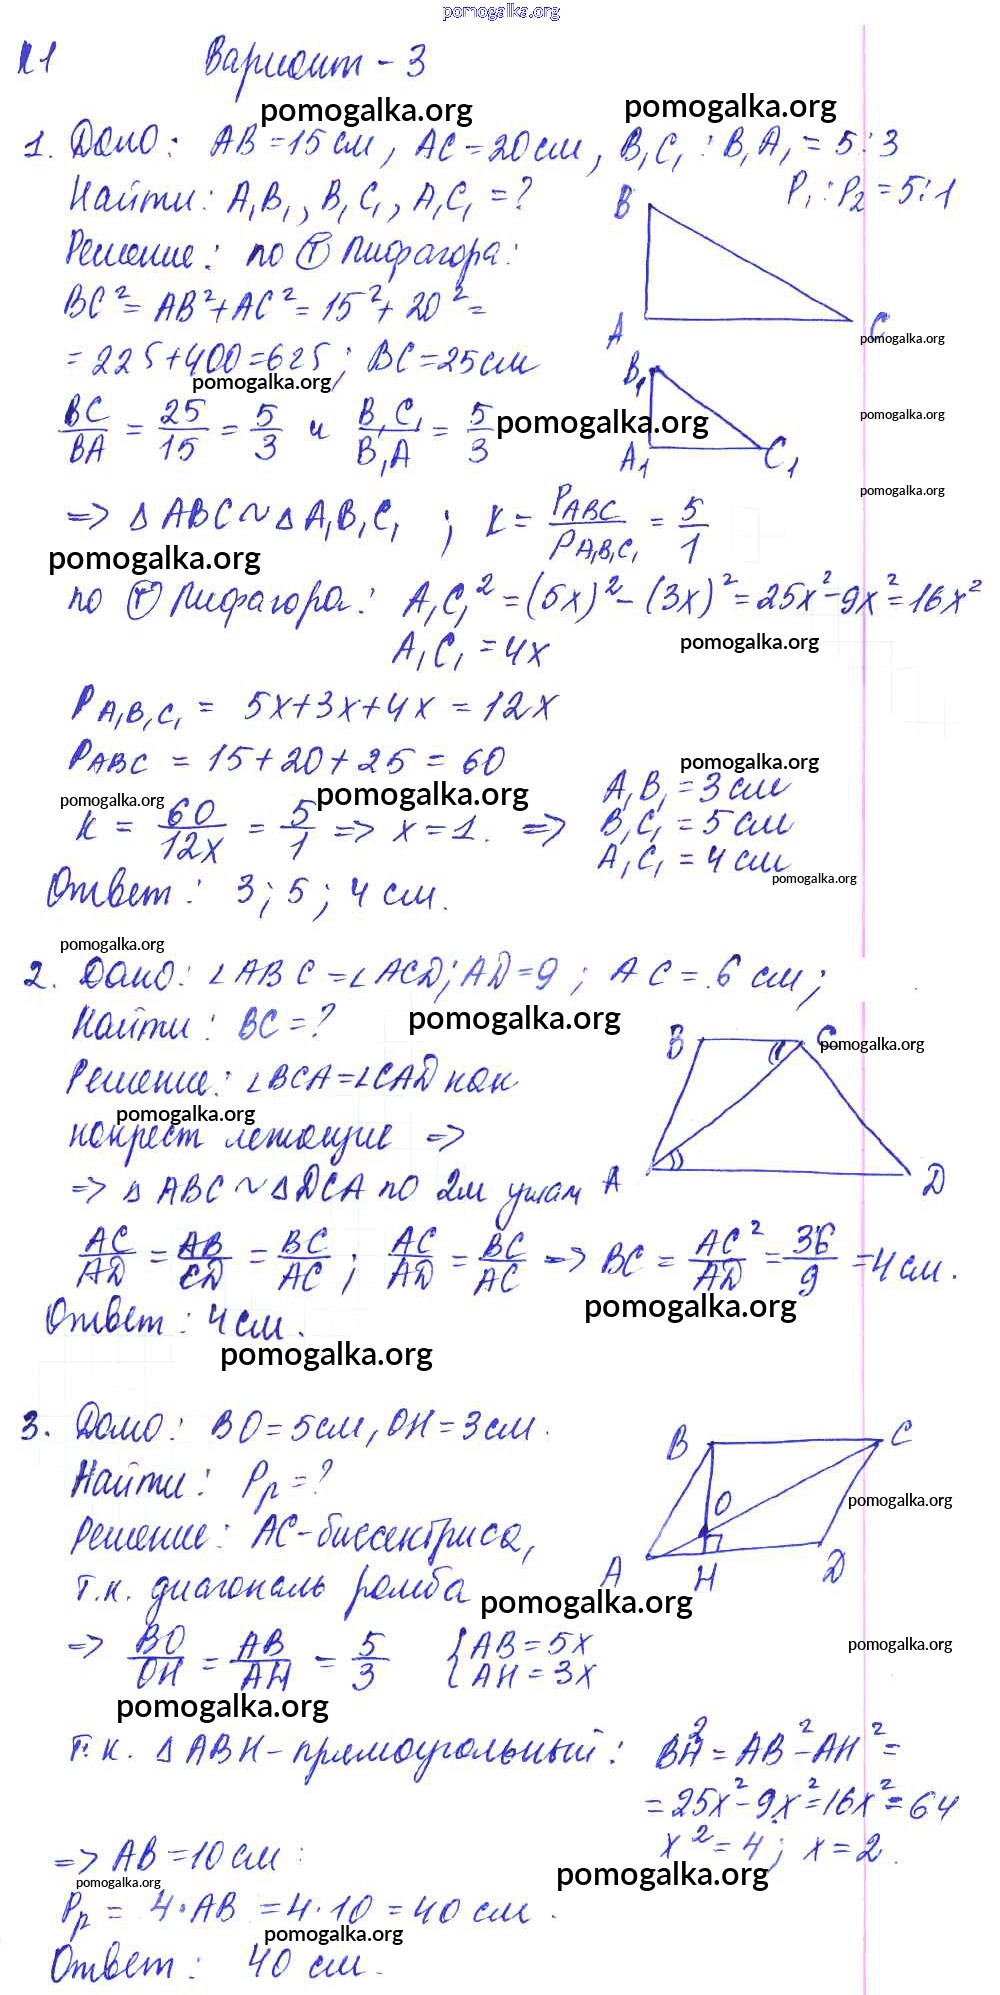 pomogalka.org
К1 Вариант - 3
pomogalka.org pomogalka.org
1. Дано: AB = 15 см, AC = 20 см, B₁C₁ : B₁A₁ = 5 : 3
Найти: A₁B₁, B₁C₁, A₁C₁ = ? P₁ : P₂ = 5 : 1
B
Решение: по Ⓣ Пифагора:
BC² = AB² + AC² = 15² + 20² =
A C
pomogalka.org
= 225 + 400 = 625; BC = 25 см
pomogalka.org
B₁
BC/BA = 25/15 = 5/3 и B₁C₁/B₁A = 5/3
pomogalka.org pomogalka.org
A₁ C₁
pomogalka.org
=> Δ ABC ~ Δ A₁B₁C₁ ; K = P ABC / P A₁B₁C₁ = 5/1
pomogalka.org
по Ⓣ Пифагора: A₁C₁² = (5x)² - (3x)² = 25x² - 9x² = 16x²
pomogalka.org
A₁C₁ = 4x
P A₁B₁C₁ = 5x + 3x + 4x = 12x
P ABC = 15 + 20 + 25 = 60
pomogalka.org
A₁B₁ = 3 см
pomogalka.org pomogalka.org
K = 60/12x = 5/1 => x = 1. => B₁C₁ = 5 см
A₁C₁ = 4 см
pomogalka.org
Ответ: 3; 5; 4 см.
pomogalka.org
2. Дано: ∠ABC = ∠ACD; AD = 9; AC = 6 см;
Найти: BC = ?
pomogalka.org
B C
pomogalka.org
Решение: ∠BCA = ∠CAD как
pomogalka.org
накрест лежащие =>
=> Δ ABC ~ Δ DCA по 2м углам
A D
AC/AD = AB/CD = BC/AC; AC/AD = BC/AC => BC = AC²/AD = 36/9 = 4 см.
pomogalka.org
Ответ: 4 см.
pomogalka.org
3. Дано: BO = 5 см, OH = 3 см.
B C
Найти: Pр = ?
O
pomogalka.org
Решение: AC - биссектриса,
A H D
т.к. диагональ ромба
pomogalka.org
=> BO/OH = AB/AH = 5/3 { AB = 5x
AH = 3x
pomogalka.org
pomogalka.org
т.к. Δ ABH - прямоугольный: BH² = AB² - AH² =
= 25x² - 9x² = 16x² = 64
x² = 4; x = 2.
=> AB = 10 см:
pomogalka.org pomogalka.org
Pр = 4 · AB = 4 · 10 = 40 см.
pomogalka.org
Ответ: 40 см.